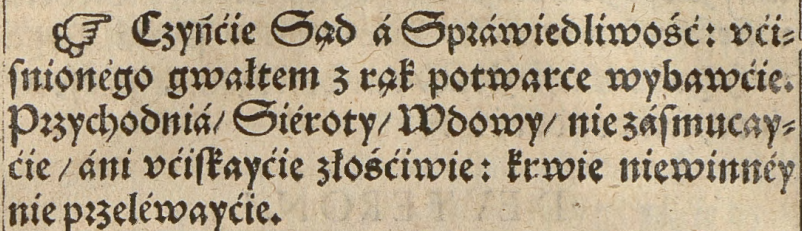 ☞ Czyńćie Sąd á Spráwiedliwość: vći-
śnionégo gwałtem z rąk potwarce wybawćie.
Przychodniá/ Siéroty/ Wdowy/ nie zásmucay-
ćie / áni vćiskayćie złośćiwie: krwie niewinnéy
nie przeléwayćie.